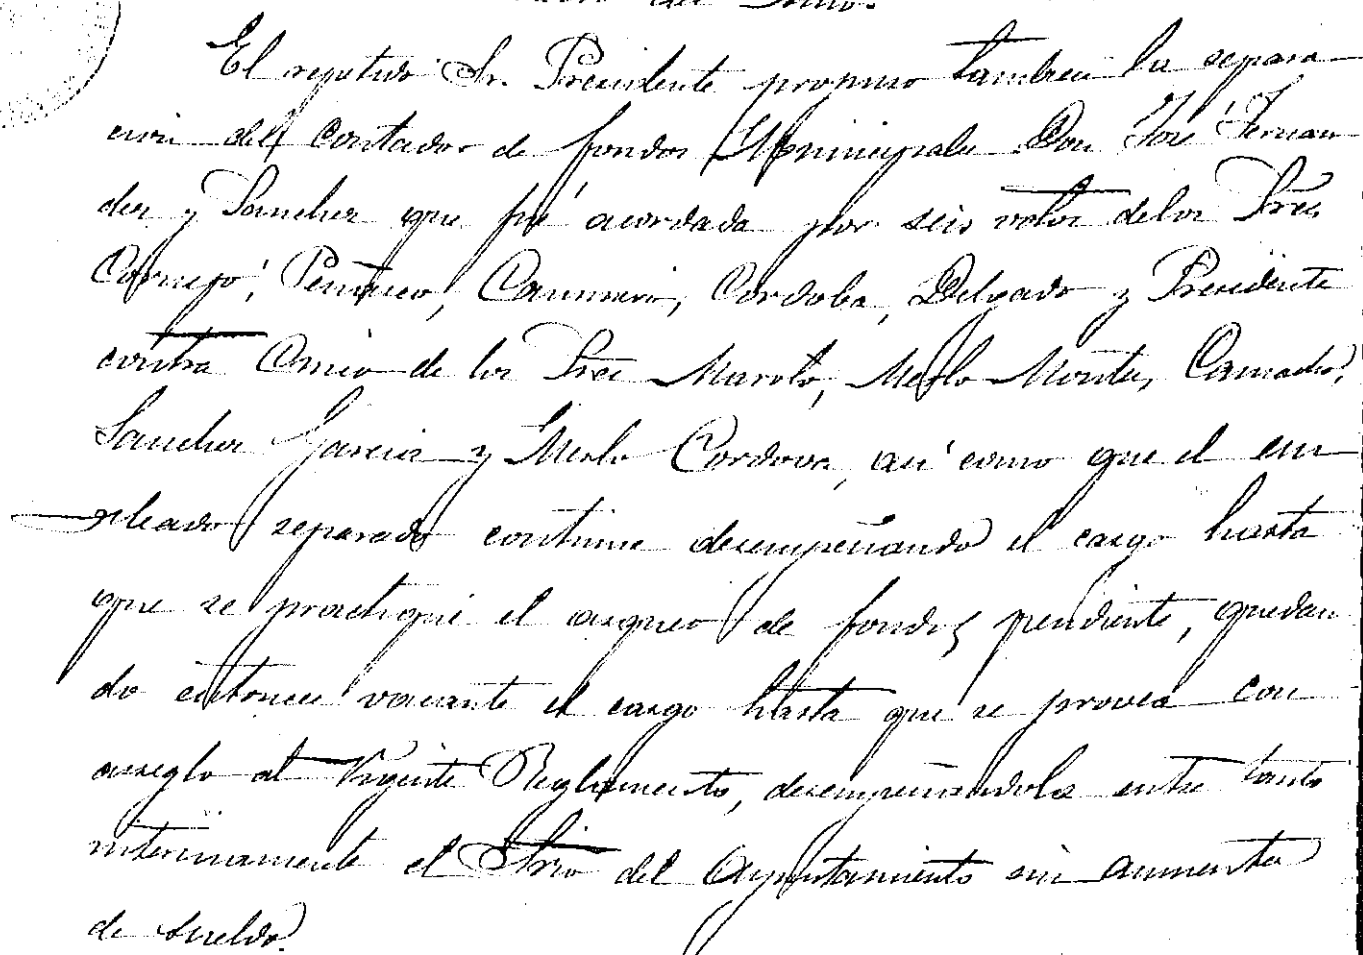 del
El repetido Sr. Presidente propuso tambien la separa-
cion del Contador de fondos Municipales Don José Fernan-
dez y Sanchez que fué acordada por seis votos delos Sres
Cornejo, Caunmeri, Cordoba, Delgado y Presidente
contra Cinco de los Sres Maroto, Merlo Montes, Camacho,
Sanchez Garcia y Merlo Cordova, asi como que el em-
pleado separado continue desempeñando el cargo hasta
que se practique el arqueo de fondos pendiente, quedan
do entonces vacante el cargo hasta que se provea con
arreglo al Vigente Reglamento, desempeñandola entre tanto
interinamente el Srio del Ayuntamiento sin aumento
de sueldo.